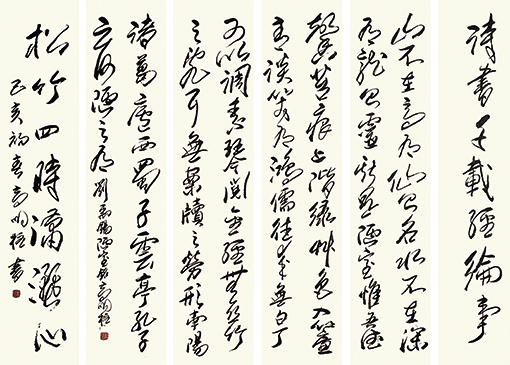 詩書千載經綸事
山不在高有仙則名水不在深
有龍則靈斯是陋室惟吾德
馨苔痕上階綠草色入簾
青談笑有鴻儒往來無白丁
可以調素琴閱金經無絲竹
之亂耳無案牘之勞形南陽
諸葛廬西蜀子雲亭孔子
云何陋之有
劉禹錫陋室銘
松竹四時瀟灑心
己亥初春 書